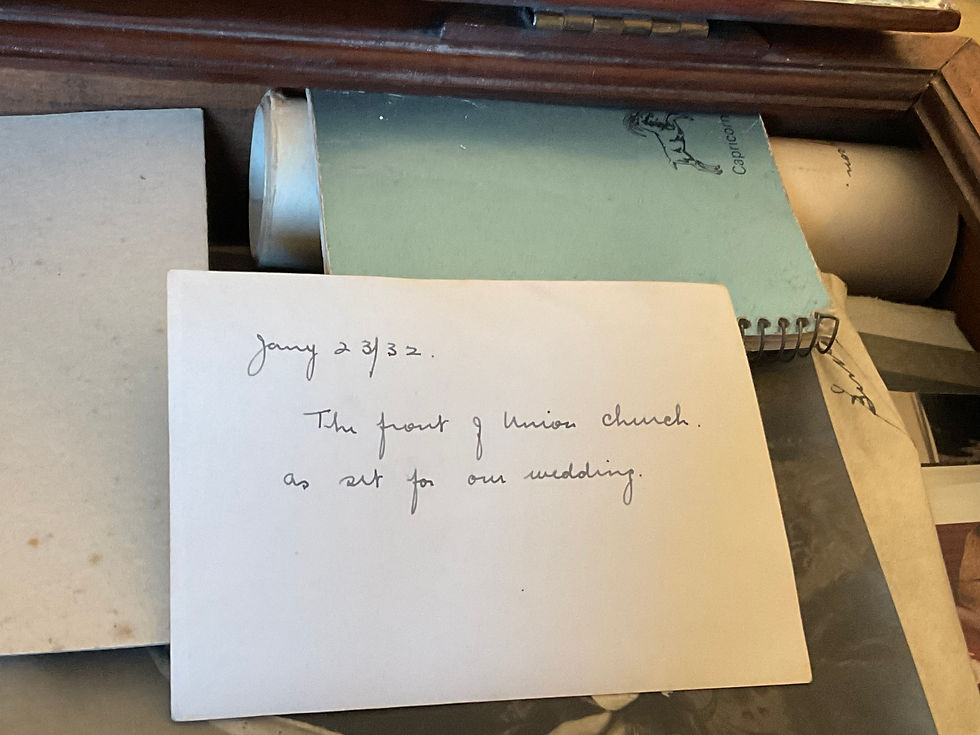 Capricorn
Jany 23/32.
The front of Union church.
as set for our wedding.